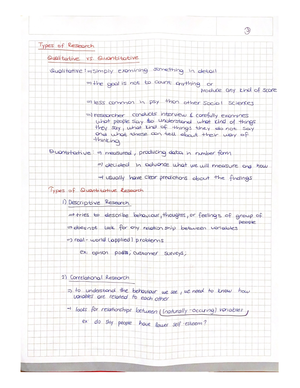 Types of Research
Qualitative vs Quantitative
Qualitative → simply examining something in detail
→ the goal is not to count anything or
produce any kind of score
→ less common in psy. than other Social Sciences
→ researcher conducts interview & carefully examines
what people say to understand what kind of things
they say, what kind of things they do not say
and what these can tell about their way of
thinking
Quantitative → measured, producing data in number form
→ decided in advance what we will measure and how
→ usually have clear predictions about the findings
Types of Quantitative Research
1) Descriptive Research
→ tries to describe behaviour, thoughts, or feelings of group of
people
→ does not look for any relationship between variables
→ real-world (applied) problems
ex. opinion polls, customer surveys,
2) Correlational Research
→ to understand the behaviour we see, we need to know how
variables are related to each other
→ looks for relationships between (naturally-occuring) variables
ex. do shy people have lower self esteem?